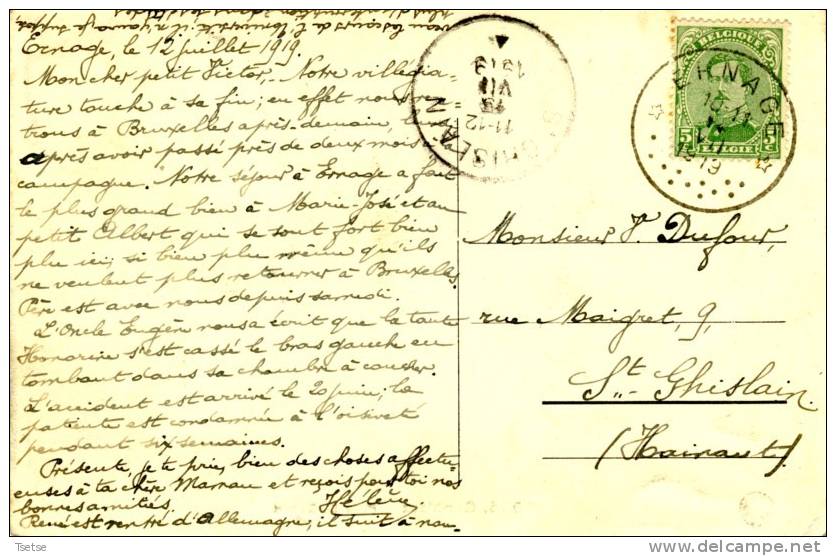 Ernage, le 12 juillet 1919.
Mon cher petit Victor, - Notre villégia-
ture touche à sa fin; en effet nous ren-
trons à Bruxelles après-demain, lundi
après avoir passé près de deux mois à la
campagne. Notre séjour à Ernage a fait
le plus grand bien à Marie-José et au
petit Albert qui se sont fort bien
plu ici; si bien plu même qu'ils
ne veulent plus retourner à Bruxelles.
Père est avec nous depuis samedi.
L'Oncle Eugène nous a écrit que la tante
Honorine s'est cassé le bras gauche en
tombant dans sa chambre à coucher.
L'accident est arrivé le 20 juin; la
patiente est condamnée à l'oisiveté
pendant six semaines.
Présente, je te prie, bien des choses affectu-
euses à ta chère Maman et reçois pour toi nos
bonnes amitiés. Hélène
René est rentré d'Allemagne; il suit à nou-
ST GHISLAIN
11-12
VII
1919
BELGIQUE
5c 5c
BELGIË
ERNAGE
10-11
VII
1919
Monsieur V. Dufour,
rue Maigret, 9,
St-Ghislain
(Hainaut)
Tsetse
delcampe.net